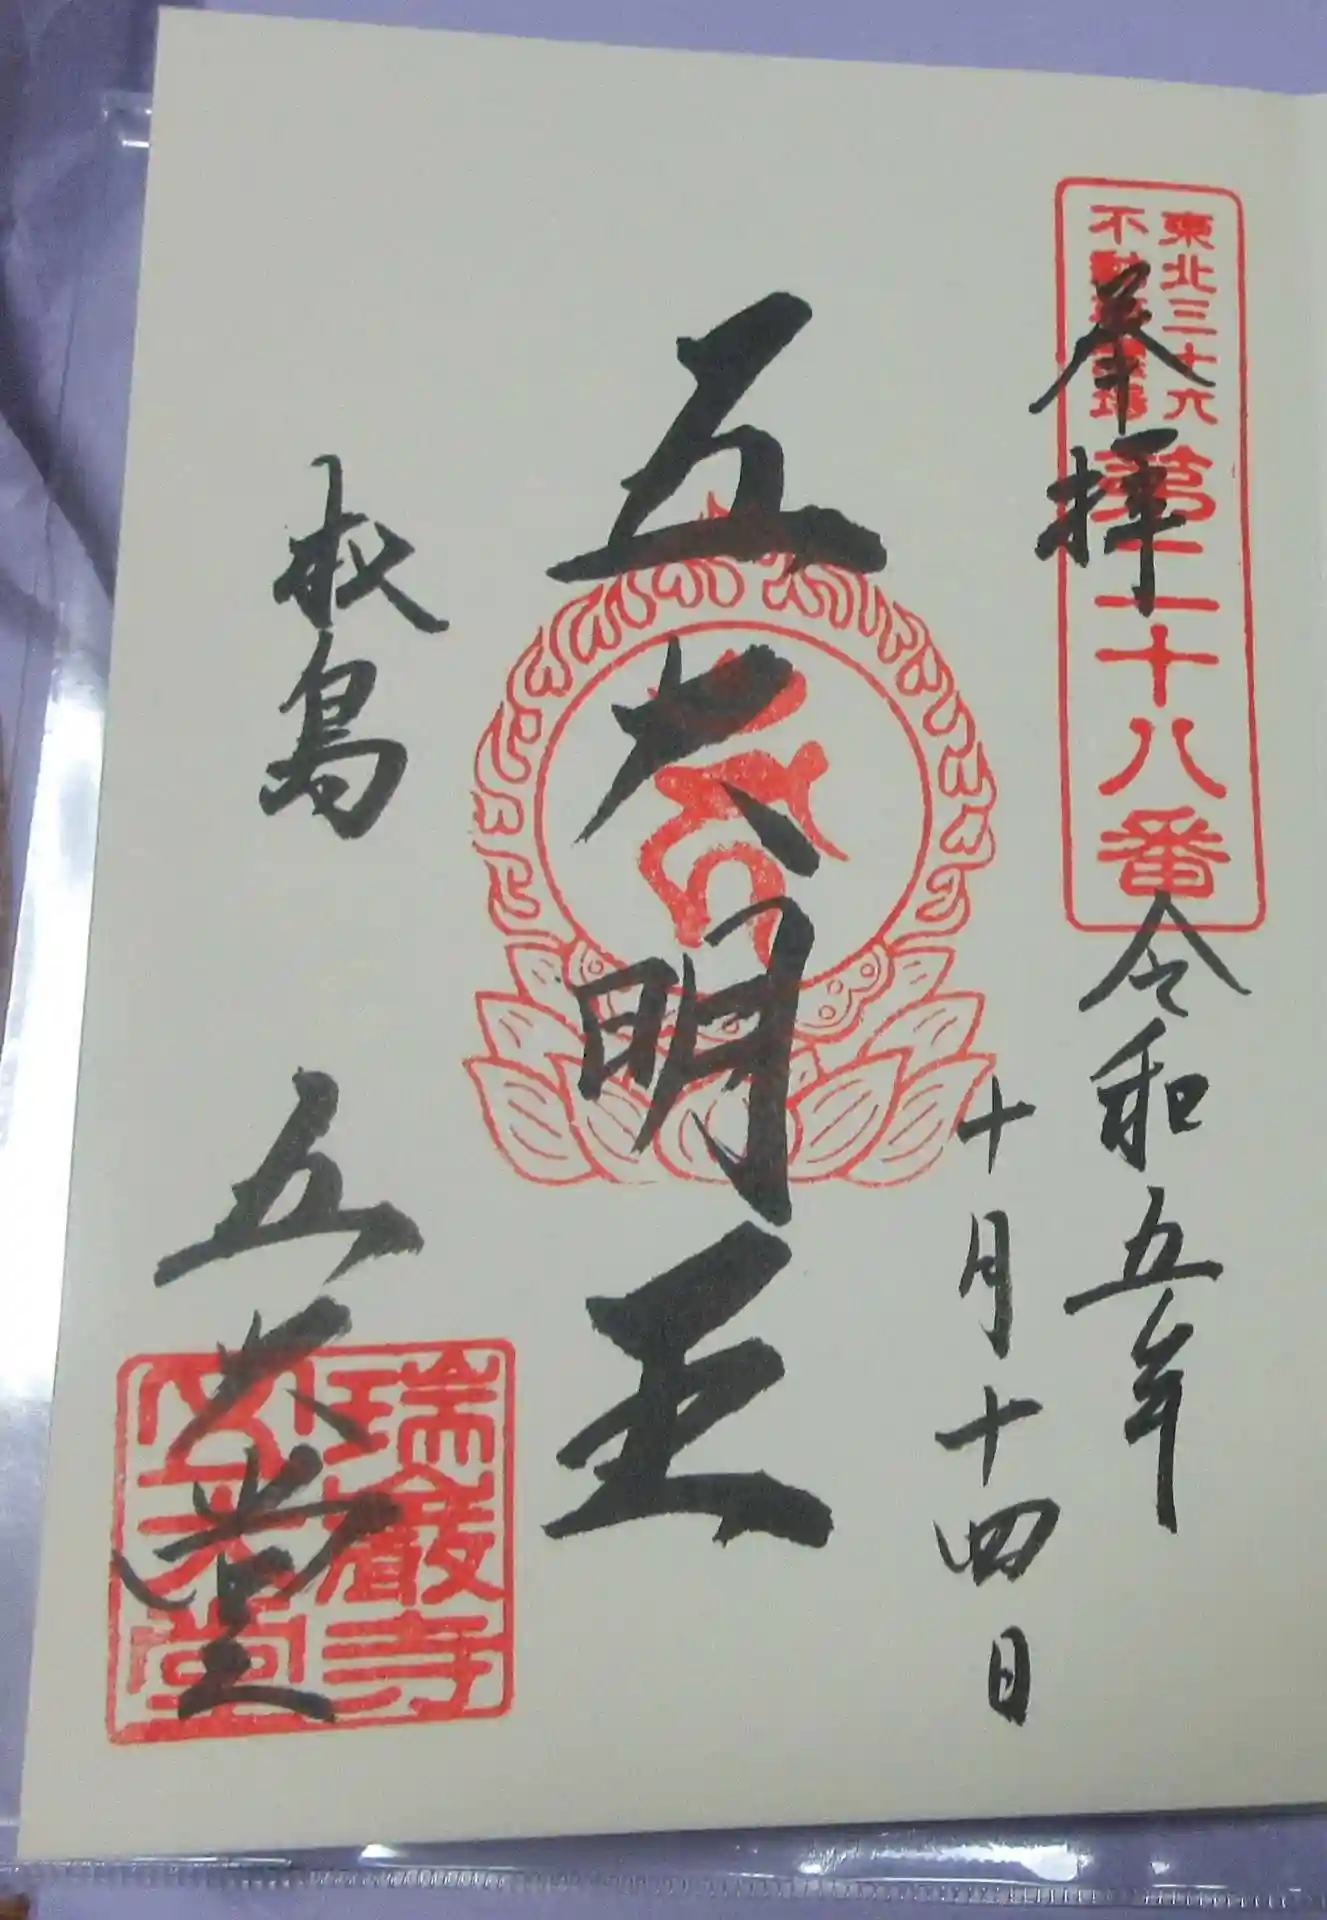 東北三十六
不動尊霊場
第二十八番
奉拝
令和五年
十月十四日
五大明王
松島
五大堂
瑞巖寺
五大堂